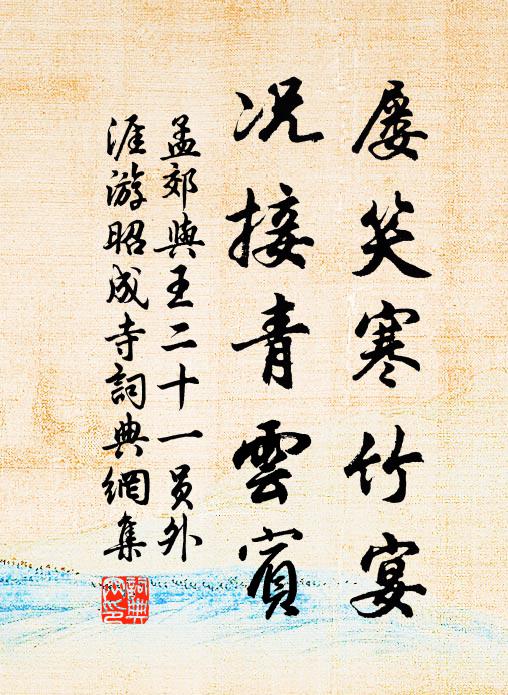 屡笑寒竹宴
况接青雲賓
孟郊與王二十一员外
涯游昭成寺詞典網集